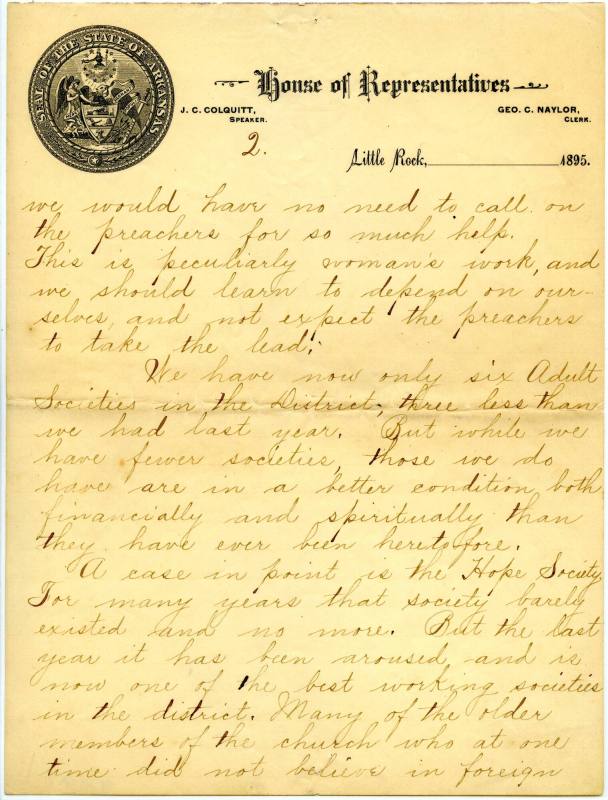 SEAL OF THE STATE OF ARKANSAS
House of Representatives
J. C. COLQUITT,
SPEAKER.
GEO. C. NAYLOR,
CLERK.
2.
Little Rock, 1895.
we would have no need to call on
the preachers for so much help.
This is peculiarly woman's work, and
we should learn to depend on our-
selves, and not expect the preachers
to take the lead;
We have now only six Adult
Societies in the District, three less than
we had last year. But while we
have fewer societies, those we do
have are in a better condition both
financially and spiritually than
they have ever been heretofore.
A case in point is the Hope Society.
For many years that society barely
existed and no more. But the last
year it has been aroused, and is
now one of the best working societies
in the district. Many of the older
members of the church who at one
time did not believe in foreign